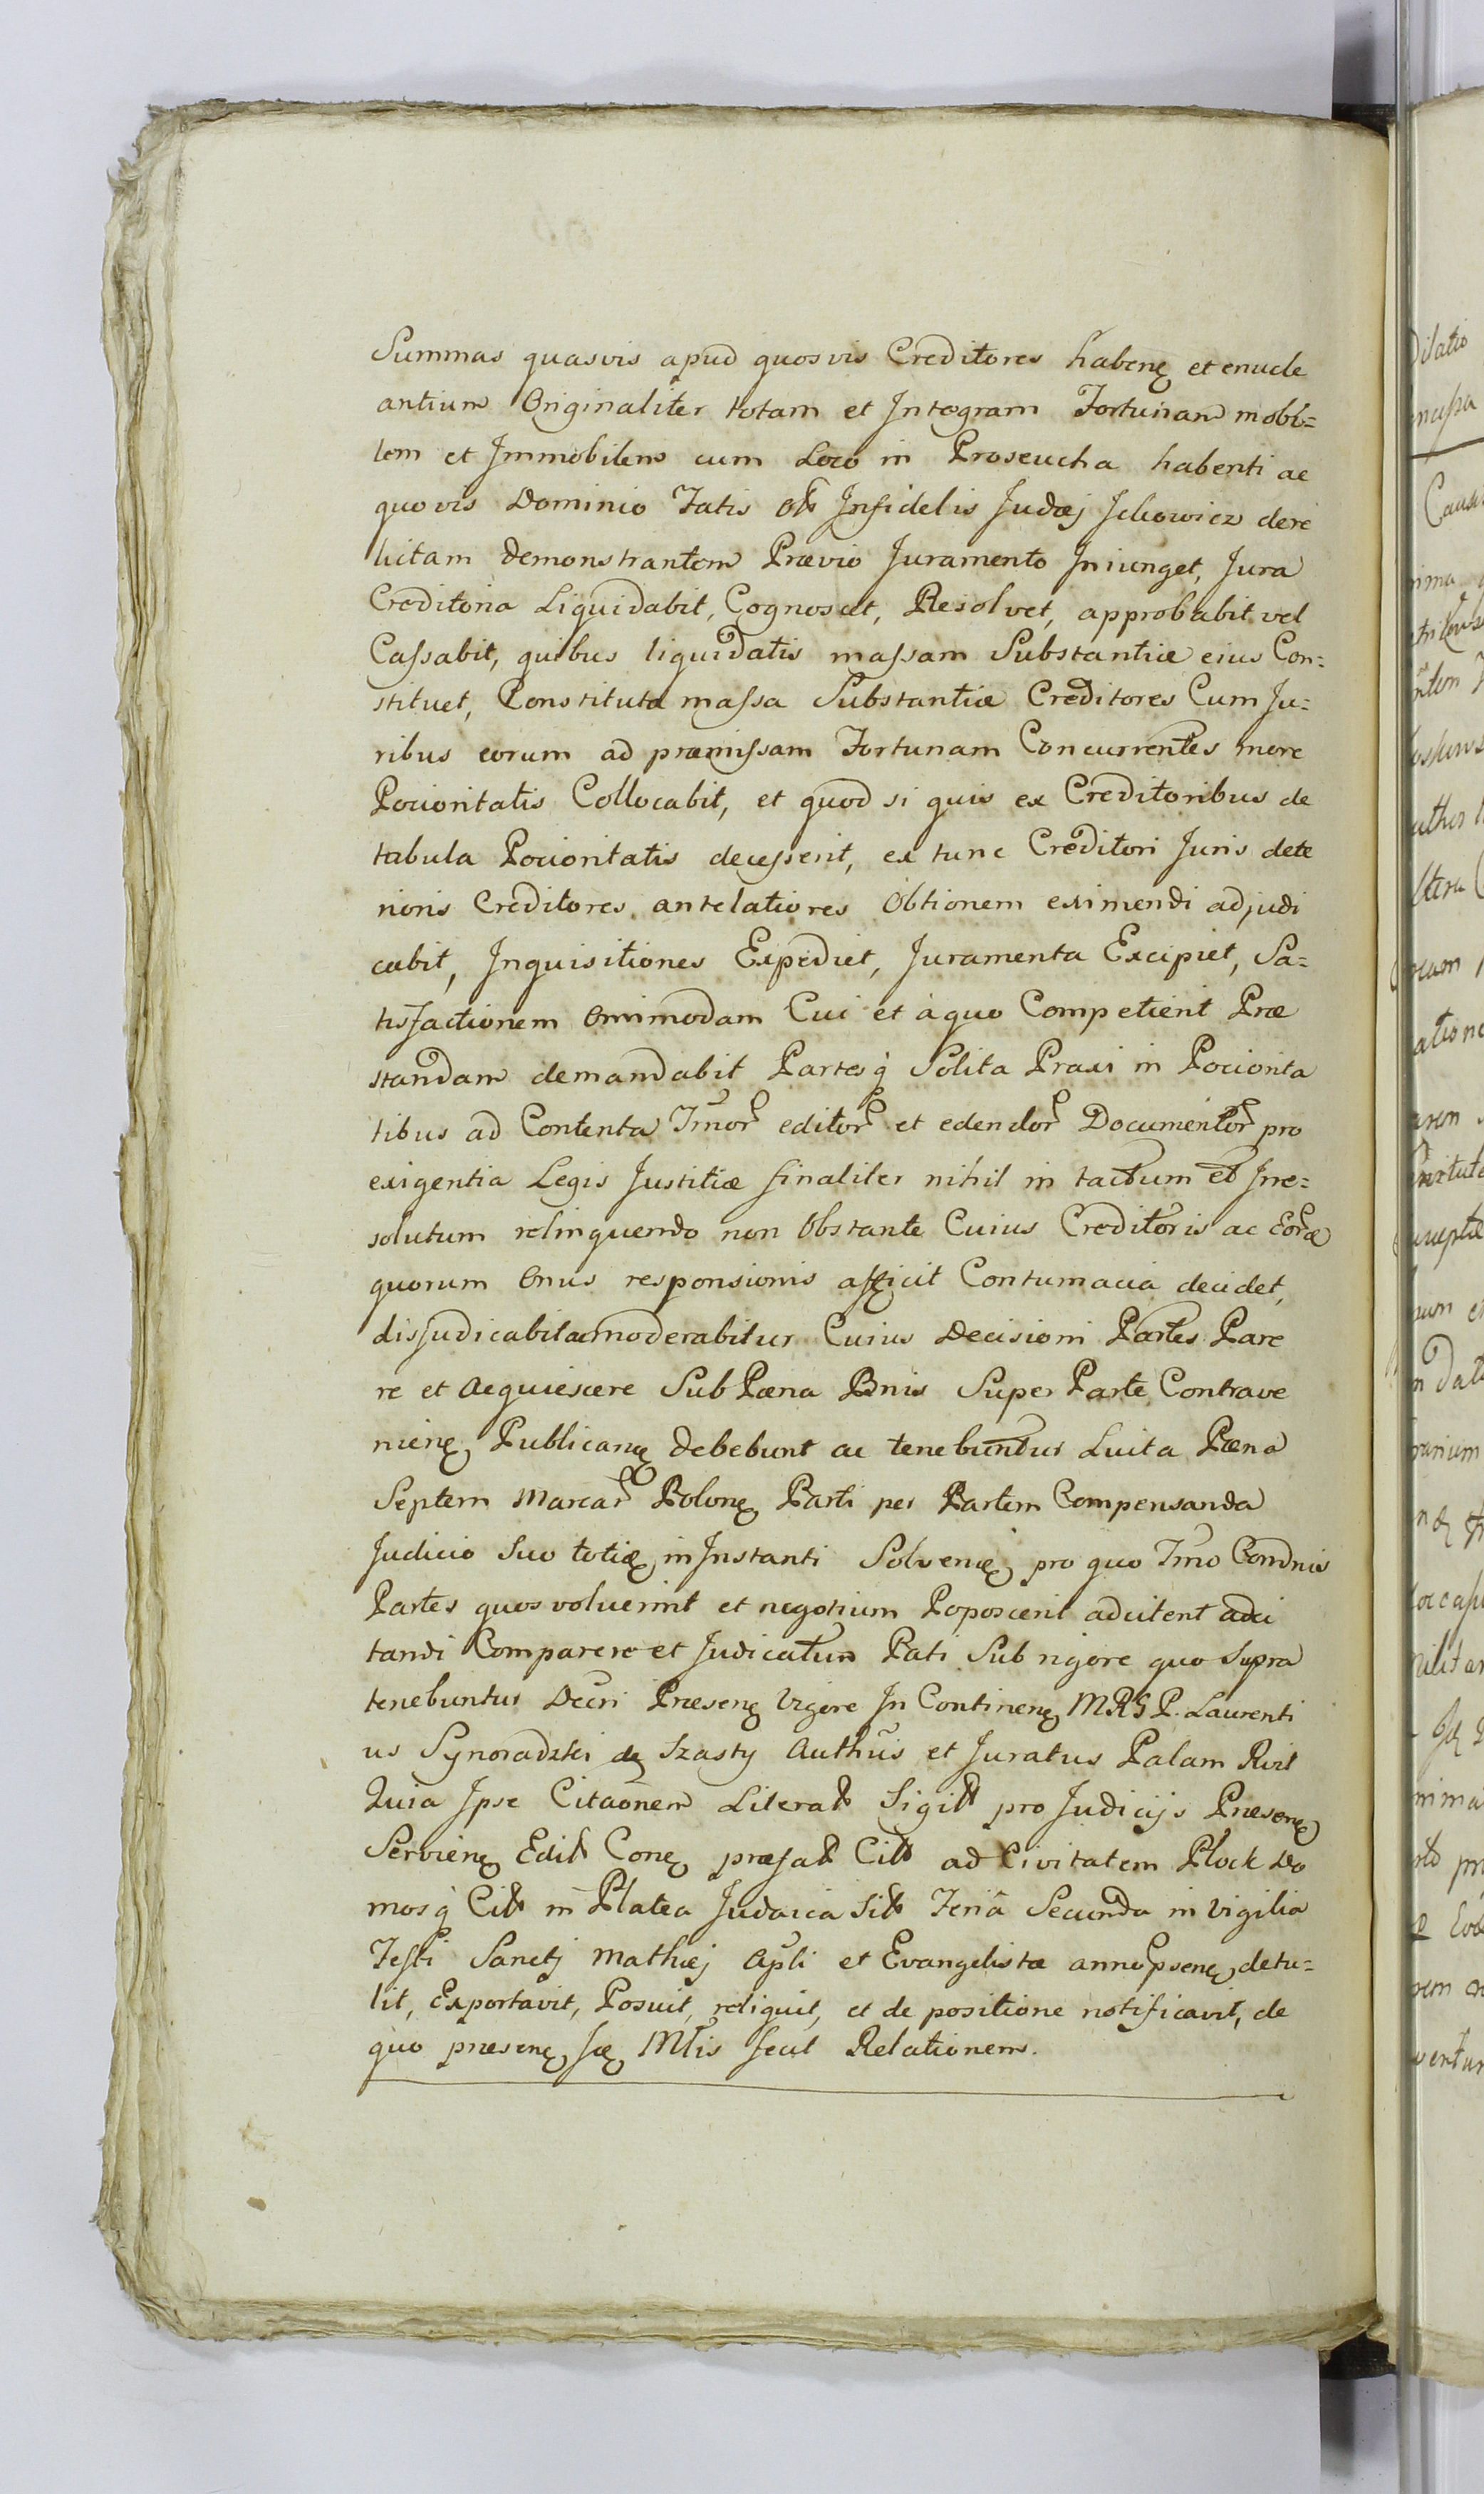 Summas quasvis apud quosvis Creditores habenꝫ et enucle
antium Originaliter totam et Integram Fortunam mobi=
lem et Immobilem cum Loco in Proseucha habenti ac
quovis Dominio Fatis olt Infidelis Judæj Jckowicz dere
lictam demonstrantem Prævio Juramento Iniunget, Jura
Creditoria Liquidabit, Cognoscet, Resolvet, approbabit vel
Cassabit, quibus liquidatis massam Substantiæ eius Con=
stituet, Constituta massa Substantiæ Creditores Cum Ju=
ribus eorum ad præmissam Fortunam Concurrentes more
Pocioritatis Collocabit, et quod si quis ex Creditoribus de
tabula Pocioritatis decesserit, ex tunc Creditori Juris dete
rioris Creditores antelatiores Obtionem eximendi adjudi
cabit, Inquisitiones Expediet, Juramenta Excipiet, Sa=
tisfactionem Omimodam Cui et àquo Competierit Præ
standam demandabit Partesq̀ Solita Praxi in Pociorita
tibus ad Contenta Tmor editor et edendor Documentor pro
exigentia Legis Justitiæ finaliter nihil in tactum et Irre=
solutum relinquendo non Obstante Cuius Creditoris ac Eoræ
quorum Onus responsionis afficit Contumacia decidet,
disjudicabitacmoderabitur Cuius Decisioni Partes Pare
re et Acquiescere Sub Pæna Bnis Super Parte Contrave
nienꝫ Publicanꝫ debebunt ac tenebuntur Luita Pæna
Septem Marcar Polonꝫ Parti per Partem Compensanda
Judicio Suo totiꝫ in Instanti Solvenꝫ pro quo Tmo Condnis
Partes quos voluerint et negotium Poposcerit adcitent adci
tandi Comparere et Judicatum Pati Sub rigore quo Supra
tenebuntur Decri Præsenꝫ Vigore In Continenꝫ MRGP. Laurenti
us Synoradzki de Szasty Authûs et Juratus Palam Rvit
Quia Ipse Citaõnem Literat Sigilt pro Judicijs Præsenꝫ
Servienꝫ Edit Conꝫ præfat Citt ad Civitatem Plock Do
mosq̀ Citt in Platea Judaica Sit Feriâ Secunda in Vigilia
Festi Sanctj Mathæj Apli et Evangelistæ annopsenꝫ detu=
lit, Exportavit, Posuit, reliquit, et de positione notificavit, de
quo præsenꝫ sꝫ Mtis fecit Relationem.